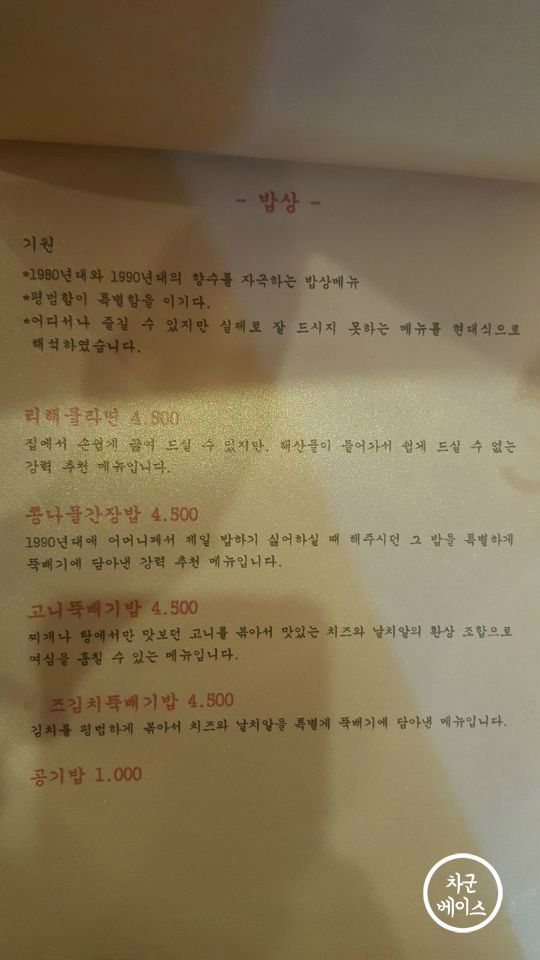 - 밥상 -
기원
*1980년대와 1990년대의 향수를 자극하는 밥상메뉴
*평범함이 특별함을 이기다.
*어디서나 즐길 수 있지만 실제로 잘 드시지 못하는 메뉴를 현대식으로
해석하였습니다.
리해물라면 4.500
집에서 손쉽게 끓여 드실 수 있지만, 해산물이 들어가서 쉽게 드실 수 없는
강력 추천 메뉴입니다.
콩나물간장밥 4.500
1990년대에 어머니께서 제일 밥하기 싫어하실 때 해주시던 그 밥을 특별하게
뚝배기에 담아낸 강력 추천 메뉴입니다.
고니뚝배기밥 4.500
찌개나 탕에서만 맛보던 고니를 볶아서 맛있는 치즈와 날치알의 환상 조합으로
여심을 훔칠 수 있는 메뉴입니다.
즈김치뚝배기밥 4.500
김치를 평범하게 볶아서 치즈와 날치알을 특별게 뚝배기에 담아낸 메뉴입니다.
공기밥 1.000
차군
베이스